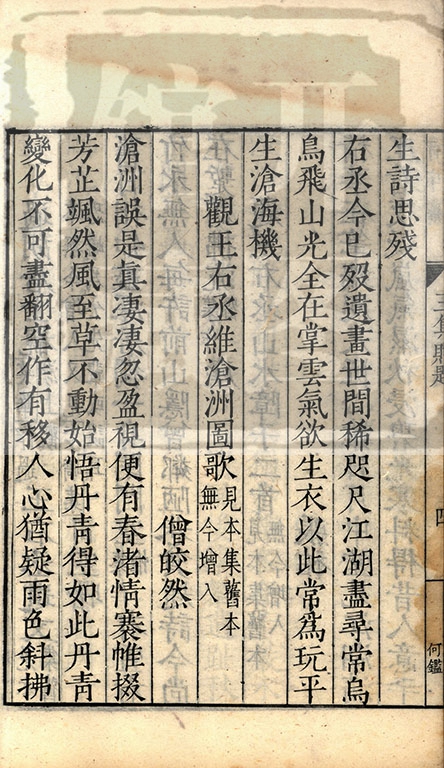 四
何鑑
生詩思殘
右丞今已歿遺畫世間稀咫尺江湖盡尋常烏
鳥飛山光全在掌雲氣欲生衣以此常爲玩平
生滄海機
觀王右丞維滄洲圖歌 見本集舊本
無今增入
僧皎然
滄洲誤是眞凄凄忽盈視便有春渚情褰帷掇
芳芷颯然風至草不動始悟丹靑得如此丹靑
變化不可盡翻空作有移人心猶疑雨色斜拂